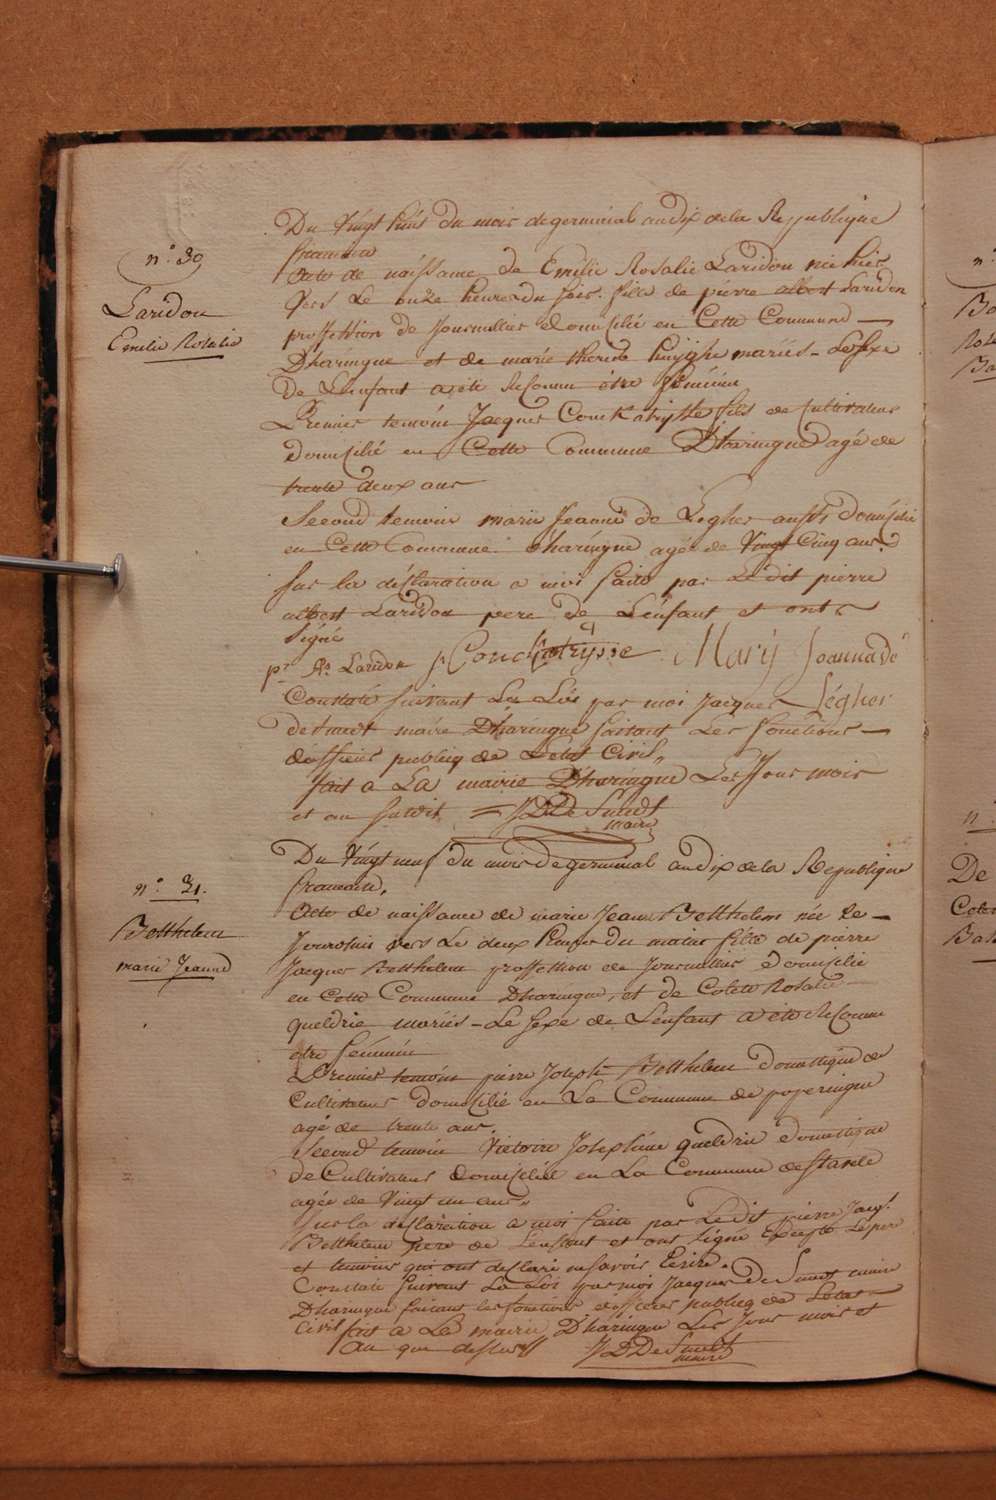 n.° 30
Laridon
Emelie Rosalie
Du Vingt huit du mois de germinal an dix de la Republique
francaise
Acte de naissance de Emelie Rosalie Laridon née hier
Vers Le onze heures du soir fille de pierre albert Laridon
profession de Journallier domicilié en Cette Commune
Dharingue et de marie therese huijghe mariés - Le sexe
De L'enfant a été Reconnu étre féminin
Premier temoin Jacques Conckatrysse fils de Cultivateur
domicilié en Cette Commune Dharingue agé de
trente deux ans
Second temoin marie Jeanne de Legher aussi domicilié
en Cette Commune dharingue agée de Vingt Cinq ans
Sur la déclaration a moi faite par Le dit pierre
albert Laridon pere de L'enfant et ont
Signé
pr. As. Laridon J. Conckatrysse Marÿ Joanna de
Constaté suivant La Loi par moi Jacques Légher
de smedt maire Dharingue faisant Les fonctions
dofficier publicq de Letat Civil,
fait a La mairie Dharingue Les Jour mois
et an susdit = JD De Smedt
maire
n.° 31.
Betthelem
marie Jeanne
Du Vingt neuf du mois de germinal an dix de la Republique
francaise,
Acte de naissance de marie Jeanne Betthelem née le
Jourdhuis vers Le deux heures du matin fille de pierre
Jacques Betthelem proffession de Journallier domicilié
en Cette Commune Dharingue, et de Colete Rosalie
queldrie mariés - Le sexe de L'enfant a été Reconnu
étre féminin
Premier temoin pierre Joseph Betthelem domestique de
Cultivateur domicilié en La Commune de poperingue
agé de trente ans,
Second temoin Victoire Josephine queldrie domestique
de Cultivateur domicilié en La Commune de Stavele
agée de Vingt un ans,
Sur la declaration a moi faite par Le dit pierre Jacq.
Betthelem pere de L'enfant et ont signé Excepte Le pere
et temoins qui ont déclaré ne savoir Ecrire.
Constate suivant La Loi par moi Jacques De Smedt maire
Dharingue faisant les fonctions d'officier publicq de Letat
Civil fait a La mairie Dharingue Les Jour mois et
an que dessus JD De Smedt
maire
n.°
n.°
De